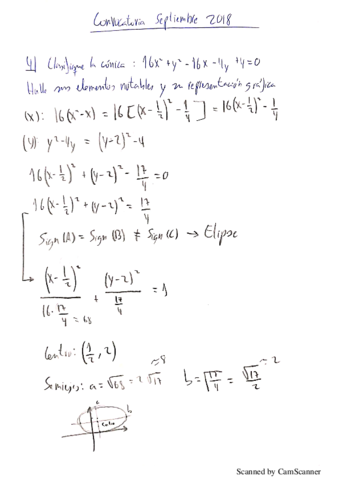 Convocatoria Septiembre 2018
4) Clasifique la cónica: 16x²+y²-16x-4y+4=0
Halle sus elementos notables y su representación gráfica
(x): 16(x²-x) = 16[(x-1/2)²-1/4] = 16(x-1/2)²-1/4
(y) y²-4y = (y-2)²-4
16(x-1/2)² + (y-2)² - 17/4 = 0
16(x-1/2)² + (y-2)² = 17/4
Sign(A) = Sign(B) ≠ Sign(C) → Elipse
(x-1/2)²/(16·17/4=68) + (y-2)²/(17/4) = 1
Centro: (1/2, 2)
Semiejes: a = √68 = 2√17 ≈8 b = √17/4 = √17/2 ≈2
a
b
Scanned by CamScanner